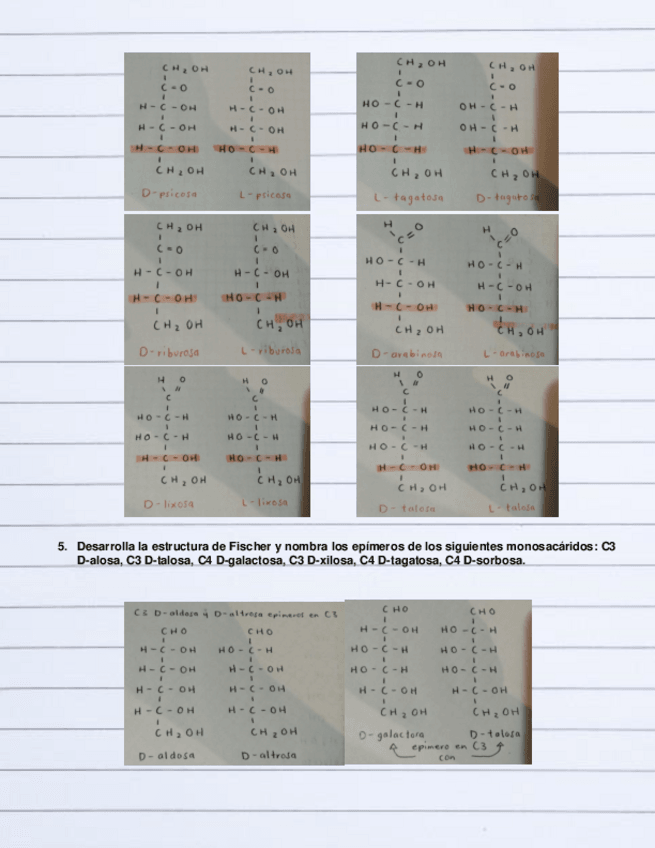 CH2OH
C=O
H-C-OH
H-C-OH
H-C-OH
CH2OH
D-psicosa
CH2OH
C=O
H-C-OH
H-C-OH
HO-C-H
CH2OH
L-psicosa
CH2OH
C=O
HO-C-H
HO-C-H
HO-C-H
CH2OH
L-tagatosa
CH2OH
C=O
OH-C-H
OH-C-H
H-C-OH
CH2OH
D-tagatosa
CH2OH
C=O
H-C-OH
H-C-OH
CH2OH
D-riburosa
CH2OH
C=O
H-C-OH
HO-C-H
CH2OH
L-riburosa
H O
C
HO-C-H
H-C-OH
H-C-OH
CH2OH
D-arabinosa
H O
C
HO-C-H
H-C-OH
HO-C-H
CH2OH
L-arabinosa
H O
C
HO-C-H
HO-C-H
H-C-OH
CH2OH
D-lixosa
H O
C
HO-C-H
HO-C-H
HO-C-H
CH2OH
L-lixosa
H O
C
HO-C-H
HO-C-H
HO-C-H
H-C-OH
CH2OH
D-talosa
H O
C
HO-C-H
HO-C-H
HO-C-H
HO-C-H
CH2OH
L-talosa
5. Desarrolla la estructura de Fischer y nombra los epímeros de los siguientes monosacáridos: C3
D-alosa, C3 D-talosa, C4 D-galactosa, C3 D-xilosa, C4 D-tagatosa, C4 D-sorbosa.
C3 D-aldosa y D-altrosa epimeros en C3
CHO
H-C-OH
H-C-OH
H-C-OH
H-C-OH
CH2OH
D-aldosa
CHO
HO-C-H
H-C-OH
H-C-OH
H-C-OH
CH2OH
D-altrosa
CHO
H-C-OH
HO-C-H
HO-C-H
H-C-OH
CH2OH
D-galactosa
CHO
HO-C-H
HO-C-H
HO-C-H
H-C-OH
CH2OH
D-talosa
epimero en C3
con